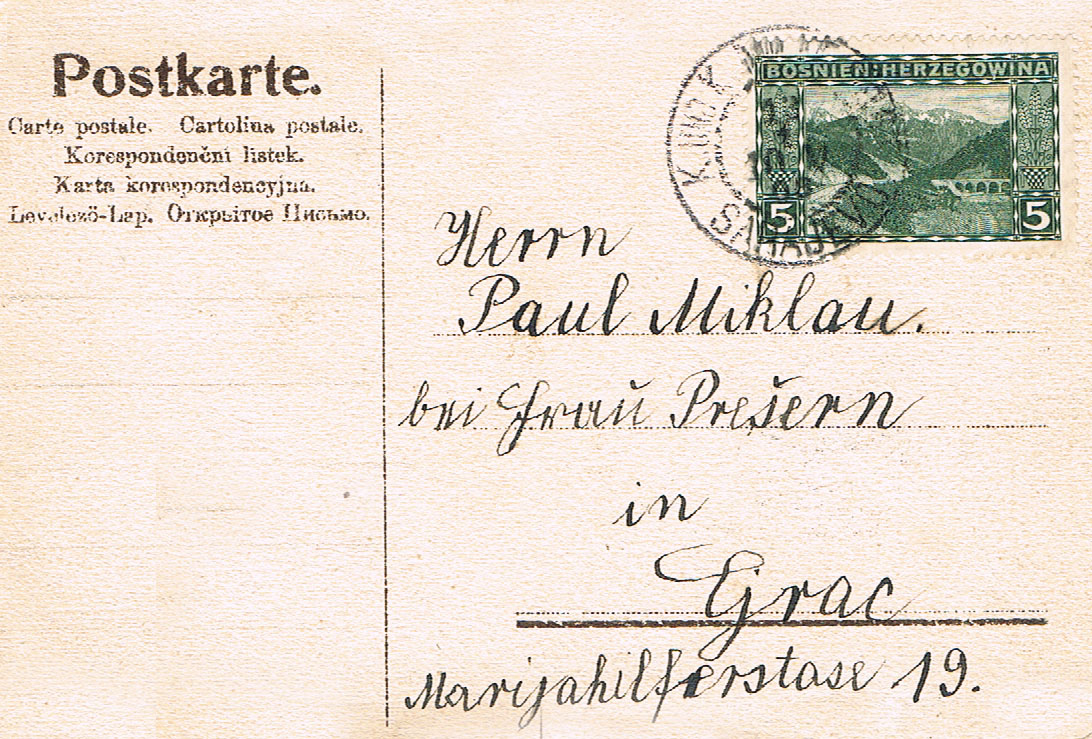 Postkarte.
Carte postale. Cartolina postale.
Korespondenční listek.
Karta korespondencyjna.
Levelező-Lap. Открытое Письмо.
BOSNIEN-HERZEGOWINA
5 5
K. UND K.
SARAJEVO
Herrn
Paul Miklau.
bei Frau Prešern
in
Grac
Marijahilferstase 19.